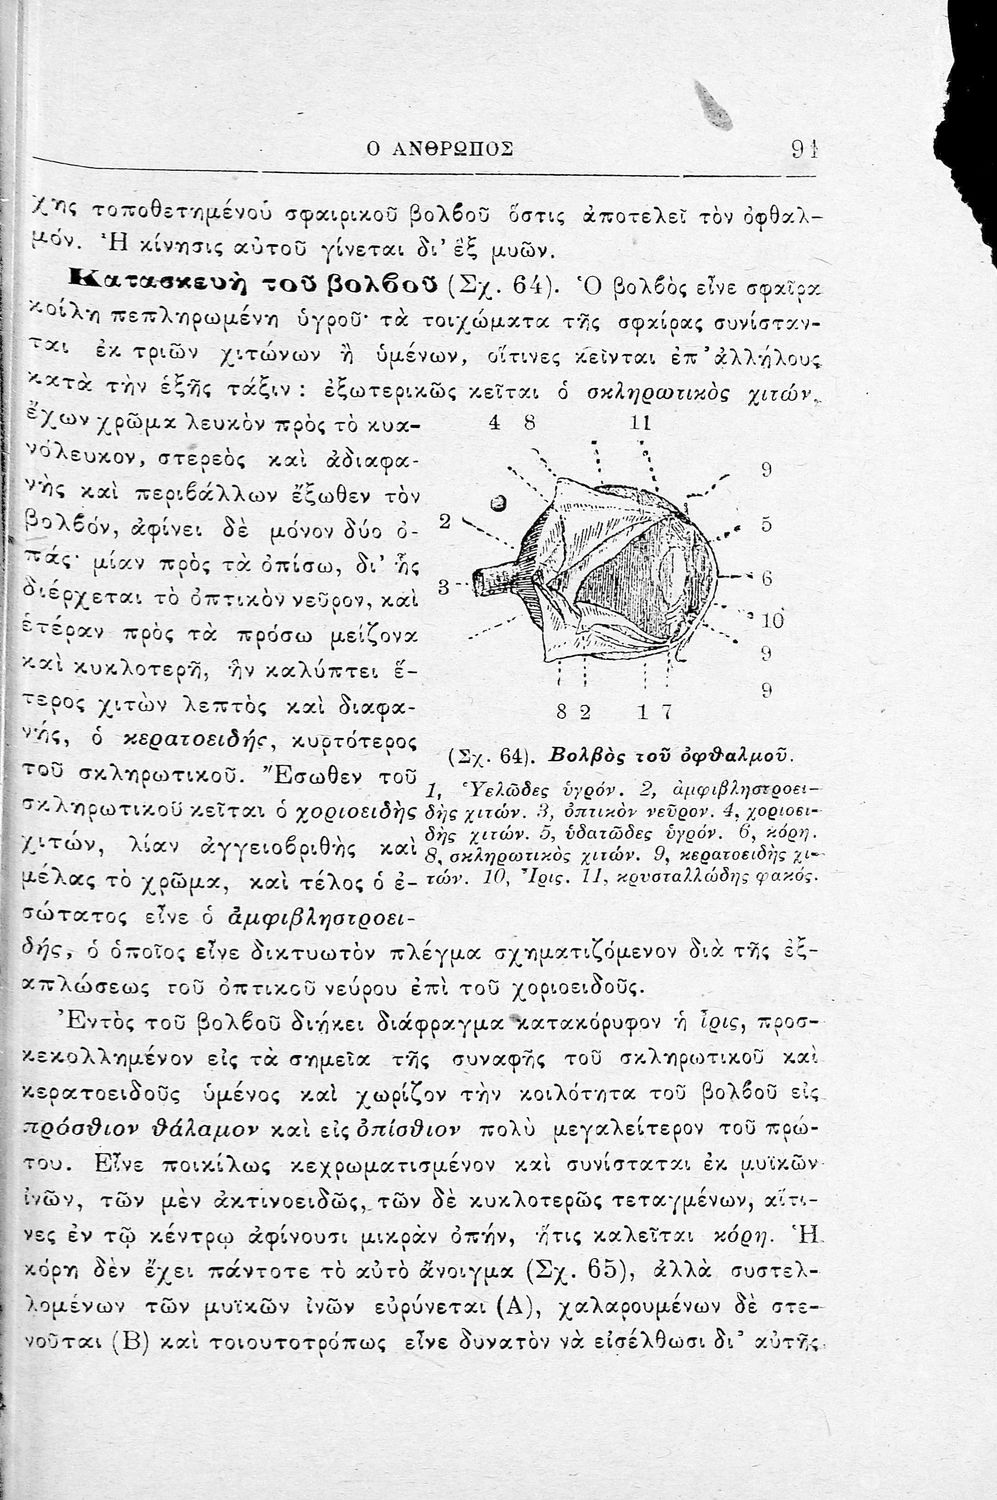 Ο ΑΝΘΡΩΠΟΣ 91
χης τοποθετημένου σφαιρικοῦ βολβοῦ ὅστις ἀποτελεῖ τὸν ὀφθαλ-
μόν. Ἡ κίνησις αὐτοῦ γίνεται δι' ἓξ μυῶν.
Κατασκευὴ τοῦ βολβοῦ (Σχ. 64). Ὁ βολβὸς εἶνε σφαῖρα
κοίλη πεπληρωμένη ὑγροῦ· τὰ τοιχώματα τῆς σφαίρας συνίσταν-
ται ἐκ τριῶν χιτώνων ἢ ὑμένων, οἵτινες κεῖνται ἐπ' ἀλλήλους
κατὰ τὴν ἑξῆς τάξιν : ἐξωτερικῶς κεῖται ὁ σκληρωτικὸς χιτών,
ἔχων χρῶμα λευκὸν πρὸς τὸ κυα-
νόλευκον, στερεὸς καὶ ἀδιαφα-
νὴς καὶ περιβάλλων ἔξωθεν τὸν
βολβόν, ἀφίνει δὲ μόνον δύο ὀ-
πάς· μίαν πρὸς τὰ ὀπίσω, δι' ἧς
διέρχεται τὸ ὀπτικὸν νεῦρον, καὶ
ἑτέραν πρὸς τὰ πρόσω μείζονα
καὶ κυκλοτερῆ, ἣν καλύπτει ἕ-
τερος χιτὼν λεπτὸς καὶ διαφα-
νής, ὁ κερατοειδής, κυρτότερος
τοῦ σκληρωτικοῦ. Ἔσωθεν τοῦ
σκληρωτικοῦ κεῖται ὁ χοριοειδὴς
χιτών, λίαν ἀγγειοβριθὴς καὶ
μέλας τὸ χρῶμα, καὶ τέλος ὁ ἐ-
σώτατος εἶνε ὁ ἀμφιβληστροει-
4 8 11
9
2 5
3 6
10
9
9
8 2 1 7
(Σχ. 64). Βολβὸς τοῦ ὀφθαλμοῦ.
1, Ὑελῶδες ὑγρόν. 2, ἀμφιβληστροει-
δὴς χιτών. 3, ὀπτικὸν νεῦρον. 4, χοριοει-
δὴς χιτών. 5, ὑδατῶδες ὑγρόν. 6, κόρη.
8, σκληρωτικὸς χιτών. 9, κερατοειδὴς χι-
τών. 10, Ἶρις. 11, κρυσταλλώδης φακός.
δής, ὁ ὁποῖος εἶνε δικτυωτὸν πλέγμα σχηματιζόμενον διὰ τῆς ἐξ-
απλώσεως τοῦ ὀπτικοῦ νεύρου ἐπὶ τοῦ χοριοειδοῦς.
Ἐντὸς τοῦ βολβοῦ διήκει διάφραγμα κατακόρυφον ἡ ἶρις, προσ-
κεκολλημένον εἰς τὰ σημεῖα τῆς συναφῆς τοῦ σκληρωτικοῦ καὶ
κερατοειδοῦς ὑμένος καὶ χωρίζον τὴν κοιλότητα τοῦ βολβοῦ εἰς
πρόσθιον θάλαμον καὶ εἰς ὀπίσθιον πολὺ μεγαλείτερον τοῦ πρώ-
του. Εἶνε ποικίλως κεχρωματισμένον καὶ συνίσταται ἐκ μυϊκῶν
ἰνῶν, τῶν μὲν ἀκτινοειδῶς, τῶν δὲ κυκλοτερῶς τεταγμένων, αἵτι-
νες ἐν τῷ κέντρῳ ἀφίνουσι μικρὰν ὀπήν, ἥτις καλεῖται κόρη. Ἡ
κόρη δὲν ἔχει πάντοτε τὸ αὐτὸ ἄνοιγμα (Σχ. 65), ἀλλὰ συστελ-
λομένων τῶν μυϊκῶν ἰνῶν εὐρύνεται (Α), χαλαρουμένων δὲ στε-
νοῦται (Β) καὶ τοιουτοτρόπως εἶνε δυνατὸν νὰ εἰσέλθωσι δι' αὐτῆς